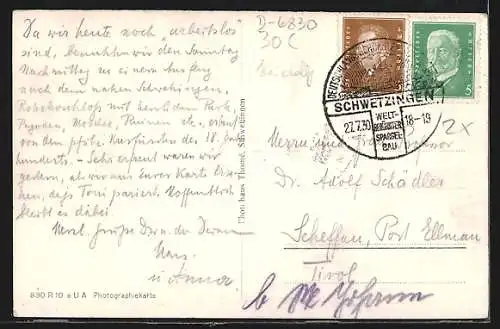 Da wir heute noch „arbeitslos"
sind, benutzten wir den Sonntag
Nachmittag zu einem Ausflug
nach dem nahen Schwetzingen,
Rokokoschloß mit herrl. dem Park,
Pagoden, Moschee, Ruinen etc. erbaut
von den pfälz. Kurfürsten des 18. Jahr
hunderts. – Sehr erfreut waren wir
gestern, als wir aus Eurer Karte
daß Toni pariert. Hoffentlich
bleibt es dabei.
Herzl. Grüße
Hans
u Anna
830 R 10 a U A Photographiekarte
Photohaus Thome, Schwetzingen
D-6830
30 C
DEUTSCHES REICH
5
DEUTSCHES REICH
5
SCHWETZINGEN
27.7.30
18-19
WELT-
BERÜHMTER
SPARGEL-
BAU
2x
Dr. Adolf Schädler
Scheffau, Post Ellmau
Tirol